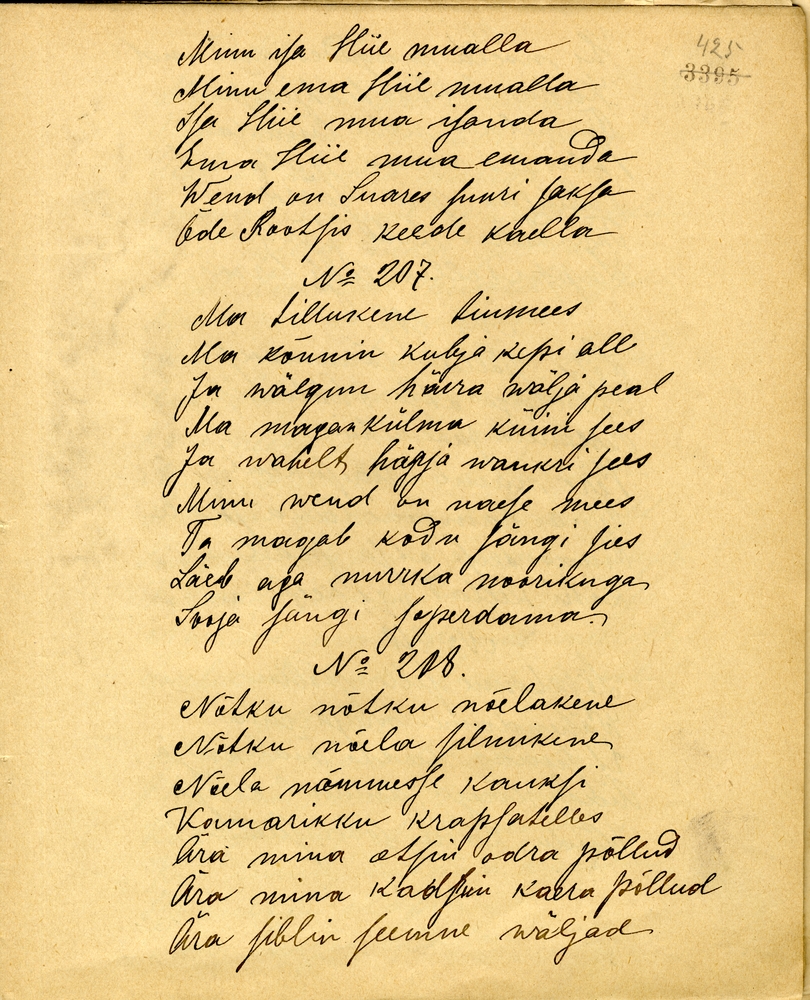 425
3395
Minu isa Hiie mualla
Minu ema Hiie mualla
Isa Hiie mua isanda
Ema Hiie mua emanda
Wend on Suares suuri saksa
Õde Rootsis keede kaella
No 207.
Ma tillukene tiumees
Ma kõnnin kubja kepi all
Ja wälgun härra wälja peal
Ma magan külma küini sees
Ja wahelt härja wankri sees
Minu wend on naese mees
Ta magab kodu sängi sees
Läeb aga nurrka noorikuga
Sooja sängi soperdama.
No 208.
Nõtku nõtku nõelakene
Nõtku nõela silmikene
Nõela nõmmesse kauksi
Kamarikku krapsatelles
Ära mina otsin odra põllud
Ära mina kadsin kaera põllud
Ära siblin seemne wäljad